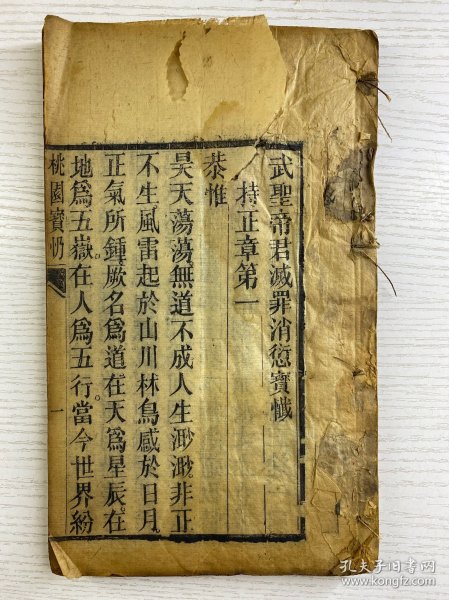 武聖帝君滅罪消愆寶懺
持正章第一
恭惟
昊天蕩蕩。無道不成人生淵淵。非正
不生風雷起於山川林鳥感於日月
正氣所鍾厥名為道在天為星辰。在
地為五嶽在人為五行。當今世界紛
桃園寶懺 一
孔夫子旧书网
www.kongfz.com